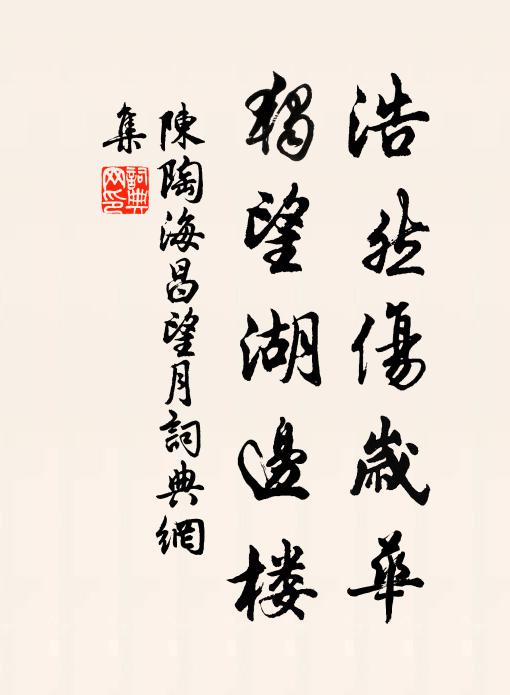 浩然傷歲華
獨望湖邊楼
陳陶海昌望月詞典網
集
詞典網印